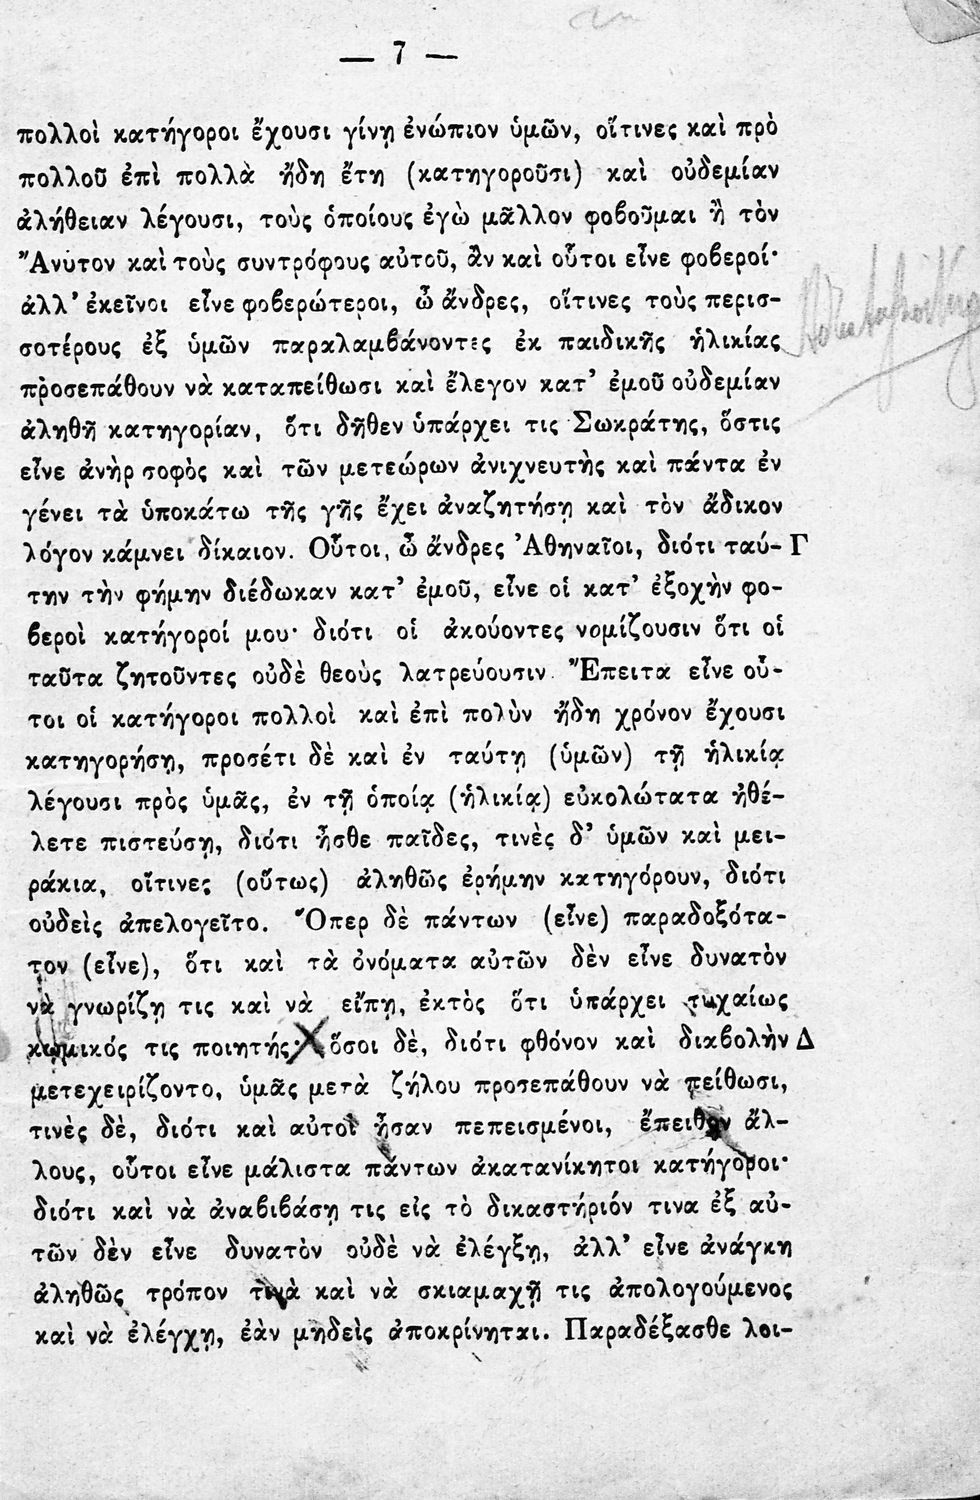 — 7 —
πολλοὶ κατήγοροι ἔχουσι γίνῃ ἐνώπιον ὑμῶν, οἵτινες καὶ πρὸ
πολλοῦ ἐπὶ πολλὰ ἤδη ἔτη (κατηγοροῦσι) καὶ οὐδεμίαν
ἀλήθειαν λέγουσι, τοὺς ὁποίους ἐγὼ μᾶλλον φοβοῦμαι ἢ τὸν
Ἄνυτον καὶ τοὺς συντρόφους αὐτοῦ, ἂν καὶ οὗτοι εἶνε φοβεροί·
ἀλλ' ἐκεῖνοι εἶνε φοβερώτεροι, ὦ ἄνδρες, οἵτινες τοὺς περισ-
σοτέρους ἐξ ὑμῶν παραλαμβάνοντες ἐκ παιδικῆς ἡλικίας
προσεπάθουν νὰ καταπείθωσι καὶ ἔλεγον κατ' ἐμοῦ οὐδεμίαν
ἀληθῆ κατηγορίαν, ὅτι δῆθεν ὑπάρχει τις Σωκράτης, ὅστις
εἶνε ἀνὴρ σοφὸς καὶ τῶν μετεώρων ἀνιχνευτὴς καὶ πάντα ἐν
γένει τὰ ὑποκάτω τῆς γῆς ἔχει ἀναζητήσῃ καὶ τὸν ἄδικον
λόγον κάμνει δίκαιον. Οὗτοι, ὦ ἄνδρες Ἀθηναῖοι, διότι ταύ- Γ
την τὴν φήμην διέδωκαν κατ' ἐμοῦ, εἶνε οἱ κατ' ἐξοχὴν φο-
βεροὶ κατήγοροί μου· διότι οἱ ἀκούοντες νομίζουσιν ὅτι οἱ
ταῦτα ζητοῦντες οὐδὲ θεοὺς λατρεύουσιν. Ἔπειτα εἶνε οὗ-
τοι οἱ κατήγοροι πολλοὶ καὶ ἐπὶ πολὺν ἤδη χρόνον ἔχουσι
κατηγορήσῃ, προσέτι δὲ καὶ ἐν ταύτῃ (ὑμῶν) τῇ ἡλικίᾳ
λέγουσι πρὸς ὑμᾶς, ἐν τῇ ὁποίᾳ (ἡλικίᾳ) εὐκολώτατα ἠθέ-
λετε πιστεύσῃ, διότι ἦσθε παῖδες, τινὲς δ' ὑμῶν καὶ μει-
ράκια, οἵτινες (οὕτως) ἀληθῶς ἐρήμην κατηγόρουν, διότι
οὐδεὶς ἀπελογεῖτο. Ὅπερ δὲ πάντων (εἶνε) παραδοξότα-
τον (εἶνε), ὅτι καὶ τὰ ὀνόματα αὐτῶν δὲν εἶνε δυνατὸν
νὰ γνωρίζῃ τις καὶ νὰ εἴπῃ, ἐκτὸς ὅτι ὑπάρχει τυχαίως
κωμικός τις ποιητής· ὅσοι δὲ, διότι φθόνον καὶ διαβολὴν Δ
μετεχειρίζοντο, ὑμᾶς μετὰ ζήλου προσεπάθουν νὰ πείθωσι,
τινὲς δὲ, διότι καὶ αὐτοὶ ἦσαν πεπεισμένοι, ἔπειθον ἄλ-
λους, οὗτοι εἶνε μάλιστα πάντων ἀκατανίκητοι κατήγοροι·
διότι καὶ νὰ ἀναβιβάσῃ τις εἰς τὸ δικαστήριόν τινα ἐξ αὐ-
τῶν δὲν εἶνε δυνατὸν οὐδὲ νὰ ἐλέγξῃ, ἀλλ' εἶνε ἀνάγκη
ἀληθῶς τρόπον τινὰ καὶ νὰ σκιαμαχῇ τις ἀπολογούμενος
καὶ νὰ ἐλέγχῃ, ἐὰν μηδεὶς ἀποκρίνηται. Παραδέξασθε λοι-